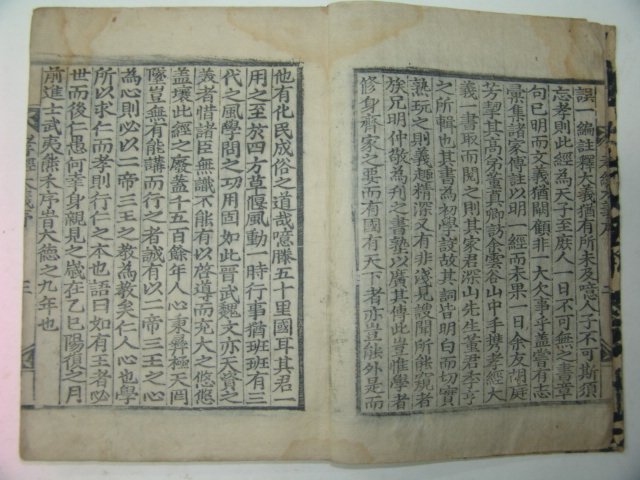 誤一編註釋大義猶有所未及噫人子不可斯須
忘孝則此經為天子至庶人一日不可無之書章
句已明而文義猶闕顧非一大欠事乎蓋嘗有志
彙集諸家傳註以明一經而未果一日余友胡庭
芳挈其高弟董真卿訪余雲谷山中手携孝經大
義一書取而閱之則其家君深山先生董君季亨
之所輯也其書為初學設故其詞皆明白而切實
熟玩之則義趣精深又有非淺見謏聞所能窺者
族兄明仲敬為刊之書塾以廣其傳此豈惟學者
修身齊家之要而有國有天下者亦豈能外是而
他有化民成俗之道哉噫滕五十里國耳其君一
用之至於四方草偃風動一時行事猶班班有三
代之風學問之功用固如此晉武魏文亦天資之
美者惜諸臣無識不能有以啓導而充大之悠悠
蓋壞此經之廢蓋千五百餘年人心秉彝極天罔
墜豈無有能講而行之者誠有以二帝三王之心
為心則必以二帝三王之教為教矣仁人心也學
所以求仁而孝則行仁之本也語曰如有王者必
世而後仁愚何幸身親見之歲在乙巳陽復之月
前進士武夷熊禾序旹大德之九年也